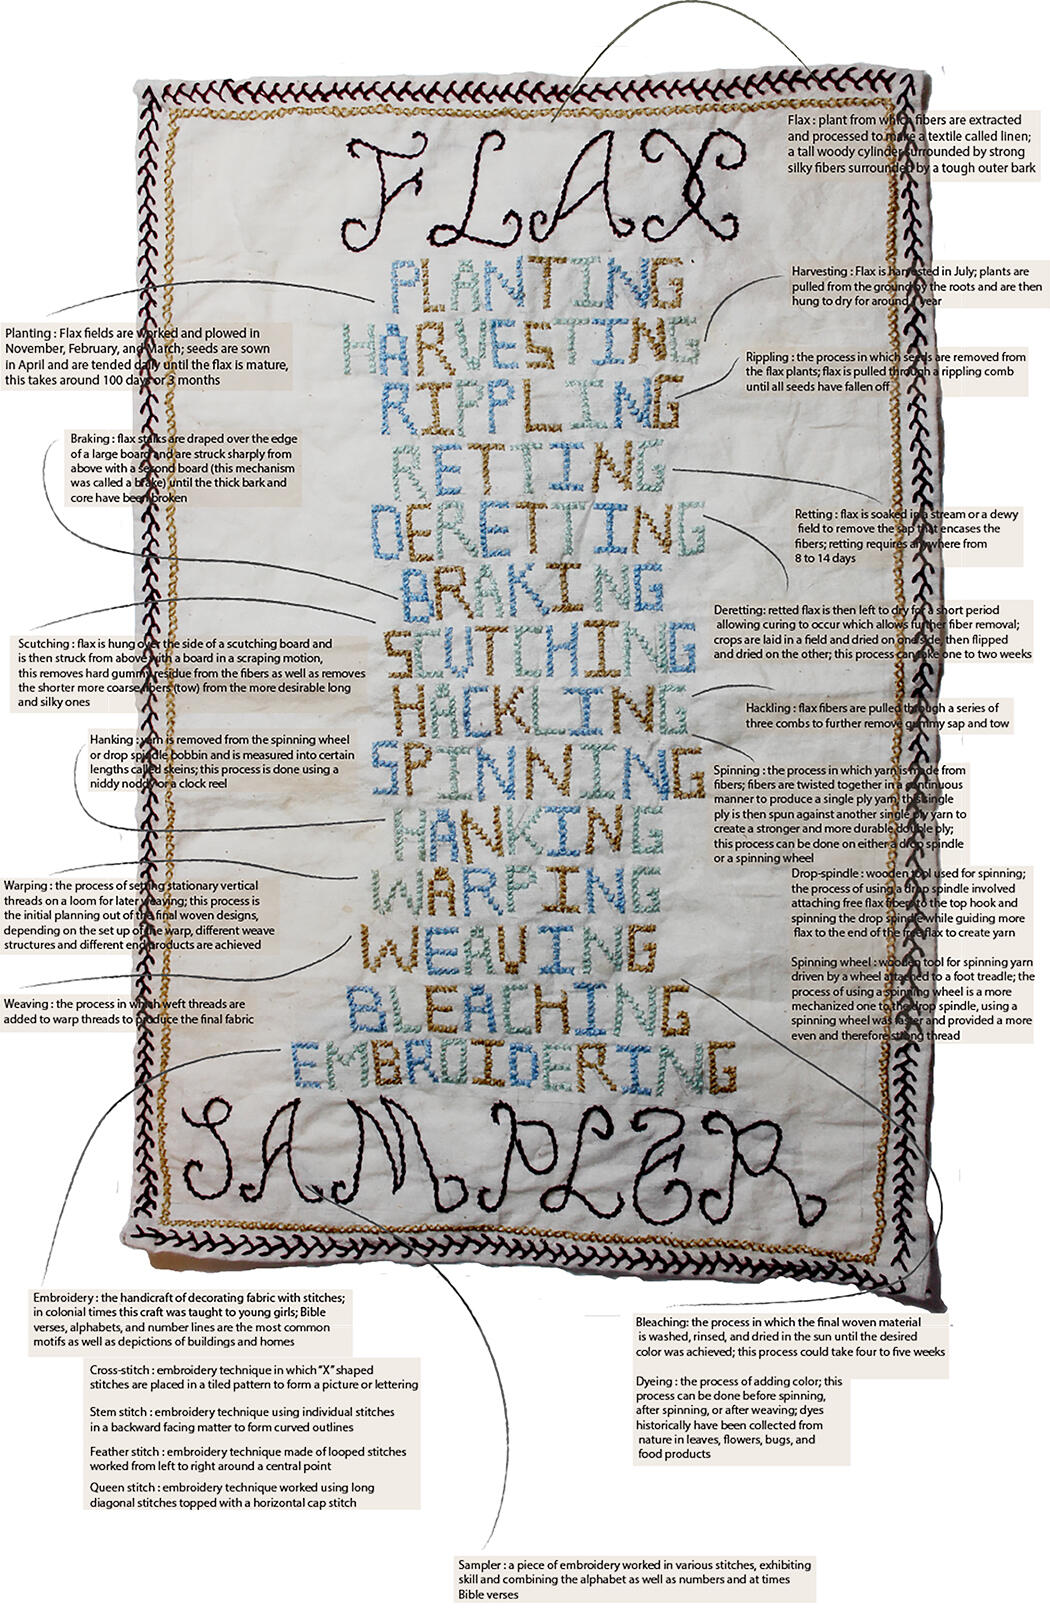 FLAX
PLANTING
HARVESTING
RIPPLING
RETTING
DERETTING
BRAKING
SCUTCHING
HACKLING
SPINNING
HANKING
WARPING
WEAVING
BLEACHING
EMBROIDERING
SAMPLER
Flax : plant from which fibers are extracted
and processed to make a textile called linen;
a tall woody cylinder surrounded by strong
silky fibers surrounded by a tough outer bark
Planting : Flax fields are worked and plowed in
November, February, and March; seeds are sown
in April and are tended daily until the flax is mature,
this takes around 100 days or 3 months
Harvesting : Flax is harvested in July; plants are
pulled from the ground by the roots and are then
hung to dry for around 1 year
Rippling : the process in which seeds are removed from
the flax plants; flax is pulled through a rippling comb
until all seeds have fallen off
Braking : flax stalks are draped over the edge
of a large board and are struck sharply from
above with a second board (this mechanism
was called a brake) until the thick bark and
core have been broken
Retting : flax is soaked in a stream or a dewy
field to remove the sap that encases the
fibers; retting requires anywhere from
8 to 14 days
Deretting: retted flax is then left to dry for a short period
allowing curing to occur which allows further fiber removal;
crops are laid in a field and dried on one side, then flipped
and dried on the other; this process can take one to two weeks
Scutching : flax is hung over the side of a scutching board and
is then struck from above with a board in a scraping motion,
this removes hard gummy residue from the fibers as well as removes
the shorter more coarse fibers (tow) from the more desirable long
and silky ones
Hackling : flax fibers are pulled through a series of
three combs to further remove gummy sap and tow
Hanking : yarn is removed from the spinning wheel
or drop spindle bobbin and is measured into certain
lengths called skeins; this process is done using a
niddy noddy or a clock reel
Spinning : the process in which yarn is made from
fibers; fibers are twisted together in a continuous
manner to produce a single ply yarn; this single
ply is then spun against another single ply yarn to
create a stronger and more durable double ply;
this process can be done on either a drop spindle
or a spinning wheel
Drop-spindle : wooden tool used for spinning;
the process of using a drop spindle involved
attaching free flax fibers to the top hook and
spinning the drop spindle while guiding more
flax to the end of the free flax to create yarn
Spinning wheel : wooden tool for spinning yarn
driven by a wheel attached to a foot treadle; the
process of using a spinning wheel is a more
mechanized one to the drop spindle, using a
spinning wheel was faster and provided a more
even and therefore strong thread
Warping : the process of setting stationary vertical
threads on a loom for later weaving; this process is
the initial planning out of the final woven designs,
depending on the set up of the warp, different weave
structures and different end products are achieved
Weaving : the process in which weft threads are
added to warp threads to produce the final fabric
Embroidery : the handicraft of decorating fabric with stitches;
in colonial times this craft was taught to young girls; Bible
verses, alphabets, and number lines are the most common
motifs as well as depictions of buildings and homes
Cross-stitch : embroidery technique in which “X” shaped
stitches are placed in a tiled pattern to form a picture or lettering
Stem stitch : embroidery technique using individual stitches
in a backward facing matter to form curved outlines
Feather stitch : embroidery technique made of looped stitches
worked from left to right around a central point
Queen stitch : embroidery technique worked using long
diagonal stitches topped with a horizontal cap stitch
Bleaching: the process in which the final woven material
is washed, rinsed, and dried in the sun until the desired
color was achieved; this process could take four to five weeks
Dyeing : the process of adding color; this
process can be done before spinning,
after spinning, or after weaving; dyes
historically have been collected from
nature in leaves, flowers, bugs, and
food products
Sampler : a piece of embroidery worked in various stitches, exhibiting
skill and combining the alphabet as well as numbers and at times
Bible verses